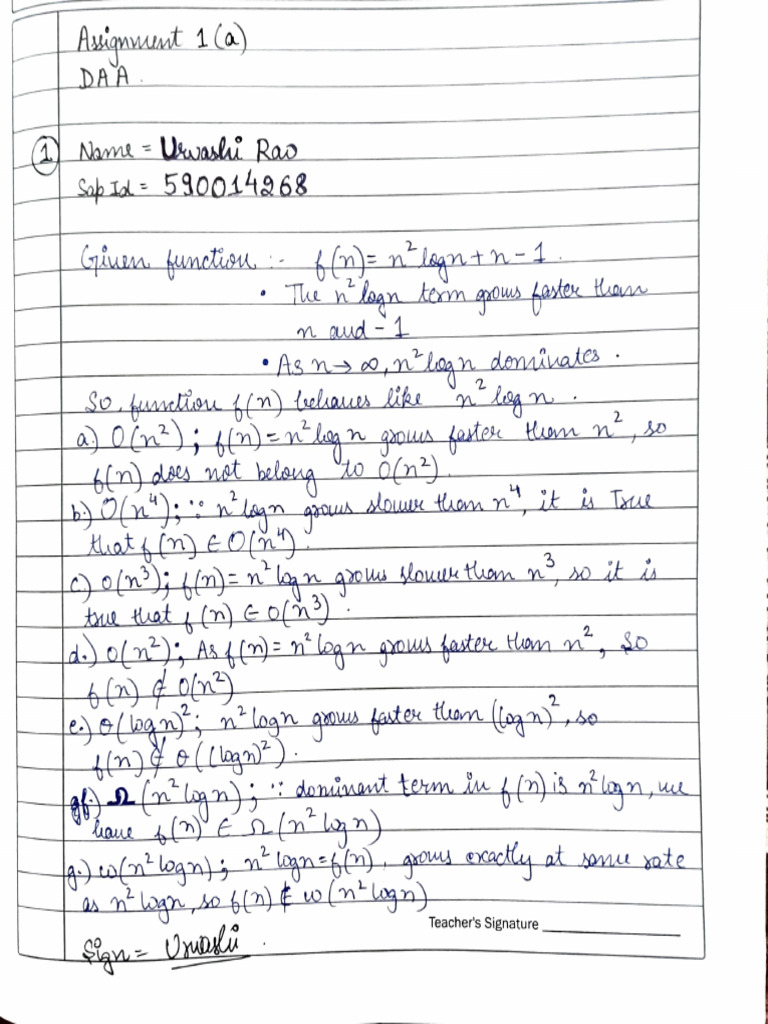 Assignment 1(a)
DAA.
① Name = Urvashi Rao
Sap Id = 590014268
Given function :- f(n) = n² log n + n - 1.
• The n² log n term grows faster than
n and - 1
• As n → ∞, n² log n dominates.
So, function f(n) behaves like n² log n.
a.) O(n²); f(n) = n² log n grows faster than n², so
f(n) does not belong to O(n²).
b.) O(n⁴); ∵ n² log n grows slower than n⁴, it is True
that f(n) ∈ O(n⁴).
c.) O(n³); f(n) = n² log n grows slower than n³, so it is
true that f(n) ∈ O(n³).
d.) O(n²); As f(n) = n² log n grows faster than n², So
f(n) ∉ O(n²)
e.) θ(log n)²; n² log n grows faster than (log n)², so
f(n) ∉ θ((log n)²).
f.) Ω(n² log n); ∵ dominant term in f(n) is n² log n, we
have f(n) ∈ Ω(n² log n)
g.) ω(n² log n); n² log n = f(n), grows exactly at same rate
as n² log n, so f(n) ∉ ω(n² log n)
Teacher's Signature
Sign = Urvashi.